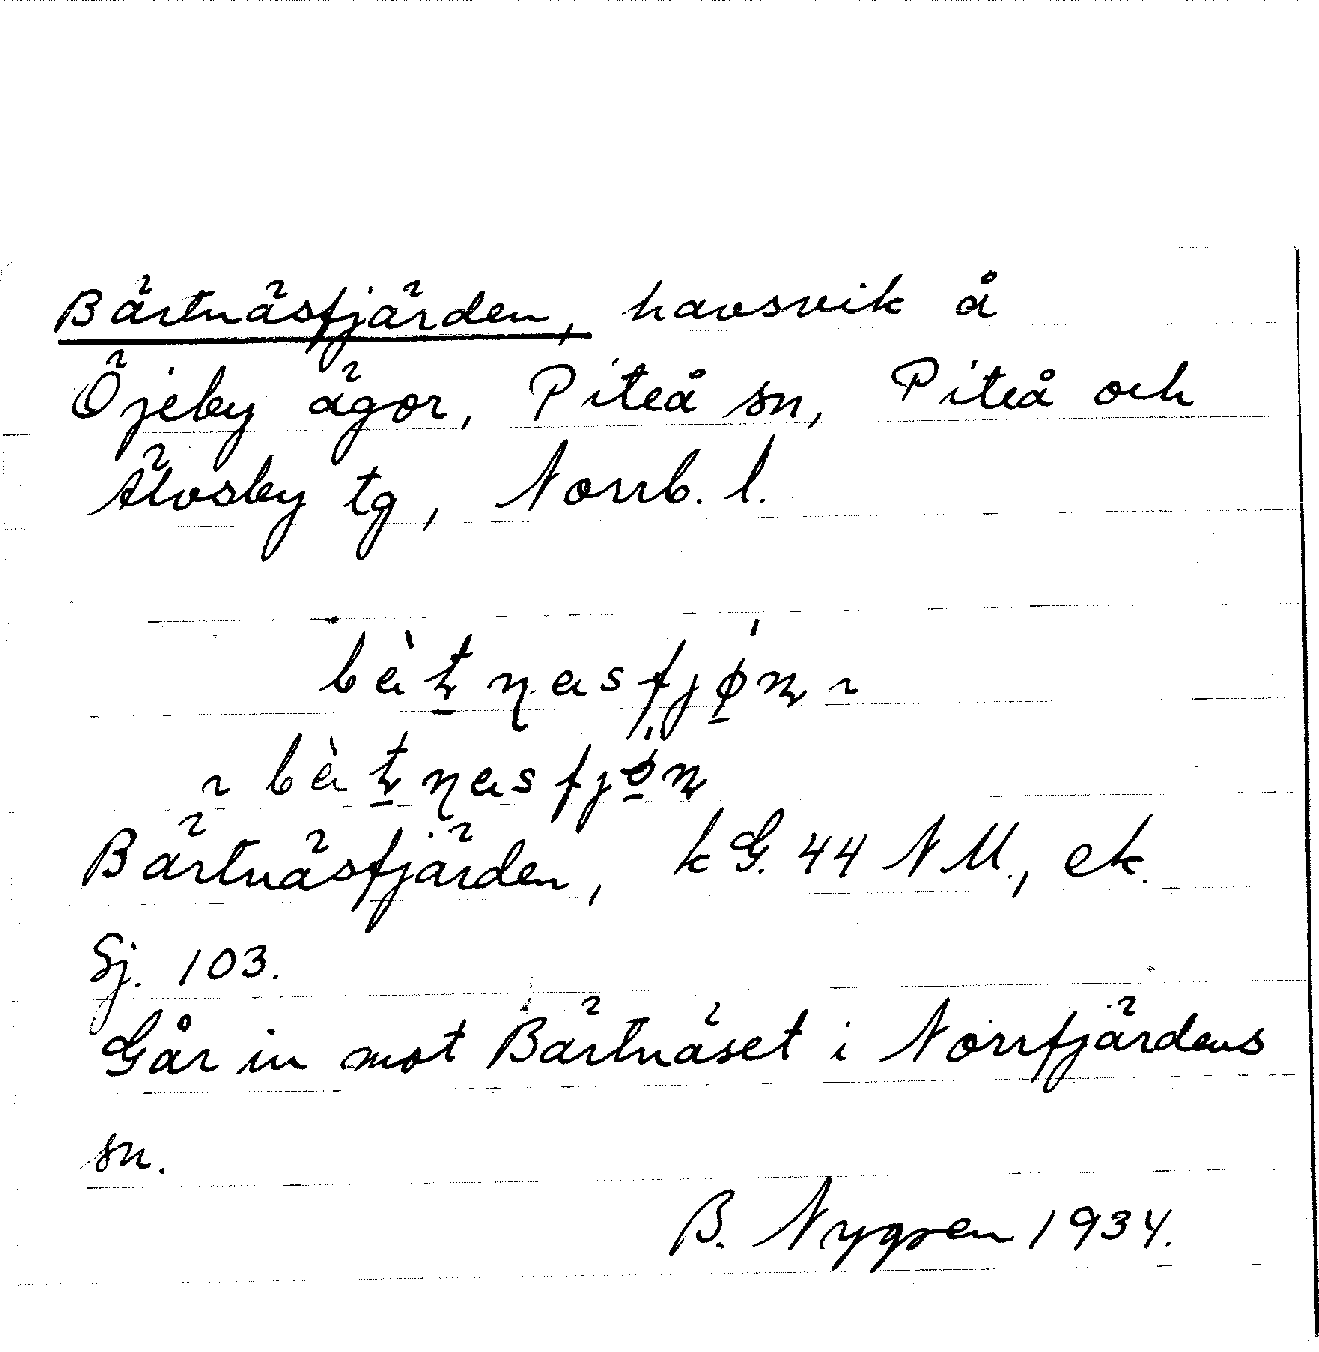 Bärtnäsfjärden, havsvik å
Öjeby ägor, Piteå sn, Piteå och
Älvsby tg, Norrb. l.
Bärtnäsfjärden, kG. 44 NM., ek.
Sj. 103.
Går in mot Bärtnäset i Norrfjärdens
sn.
B. Nygren 1934.